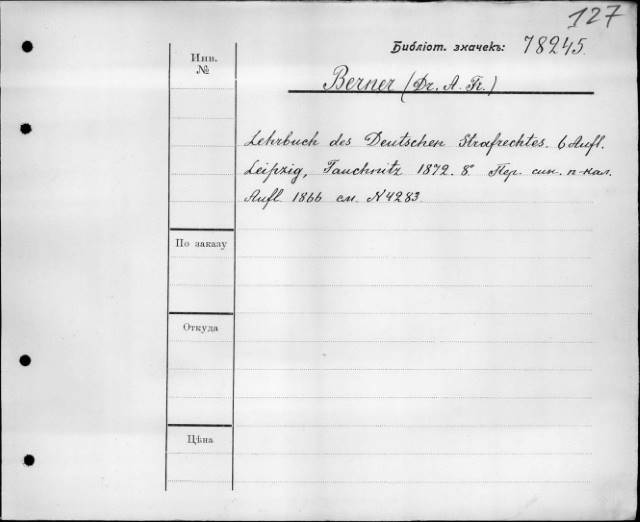 127
Библіот. значекъ: 78245.
Инв.
№
Berner (Dr. A. Fr.)
Lehrbuch des Deutschen Strafrechtes. 6 Aufl.
Leipzig, Tauchnitz 1872. 8° Пер. син. п-кал.
Aufl. 1866 см. N 4283.
По заказу
Откуда
Цѣна